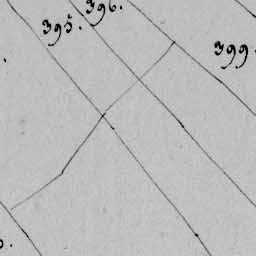 396.
395.
399.